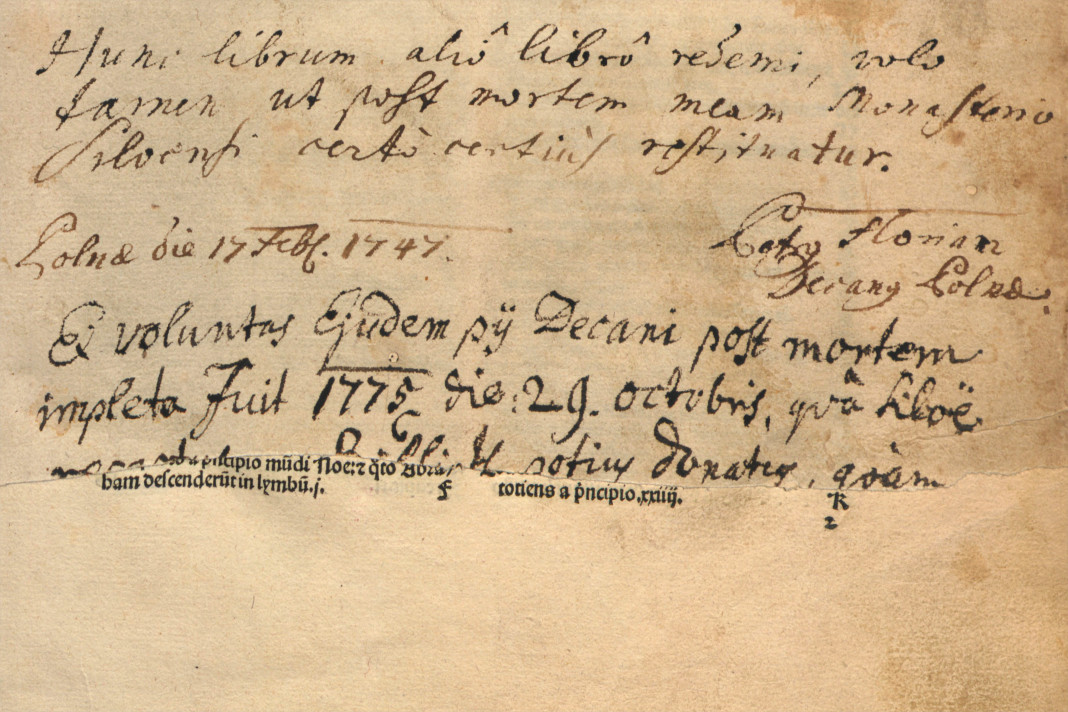 Hunc librum aliô librô redemi, volo
tamen ut post mortem meam Monasterio
Siloensi certò certiùs restituatur.
Polnæ die 17 Febr. 1747.
Florian
Decanus Polnæ.
Et voluntas Ejusdem pij Decani post mortem
impleta Fuit 1775 die: 29. octobris, quâ Siloë
potius donatus, quàm
pricipio mūdi Noe: ⁊ q̄to Abra
ham descenderūt in lymbū. j.
totiens a p̄ncipio .xxiiij.
K
2